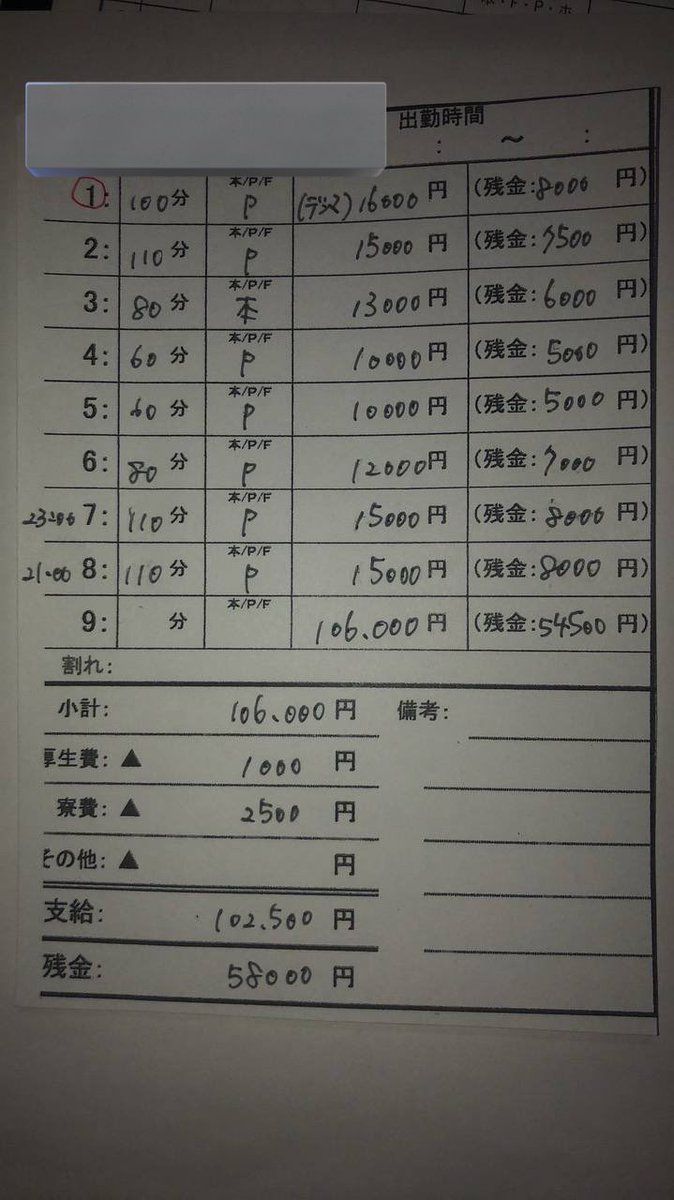 出勤時間
: ～ :
1: 100分 本/P/F P 16000円 (残金:8000円)
2: 110分 本/P/F P 15000円 (残金:7500円)
3: 80分 本/P/F 本 13000円 (残金:6000円)
4: 60分 本/P/F P 10000円 (残金:5000円)
5: 60分 本/P/F P 10000円 (残金:5000円)
6: 80分 本/P/F P 12000円 (残金:7000円)
7: 110分 本/P/F P 15000円 (残金:8000円)
21:00 8: 110分 本/P/F P 15000円 (残金:8000円)
9: 分 本/P/F 106.000円 (残金:54500円)
割れ:
小計: 106.000円 備考:
厚生費: ▲ 1000 円
寮費: ▲ 2500 円
その他: ▲ 円
支給: 102.500 円
残金: 58000 円